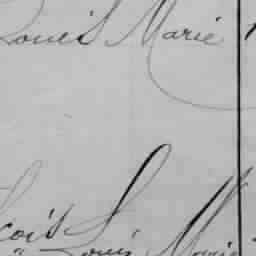 Louis Marie
çois L
Louis Marie